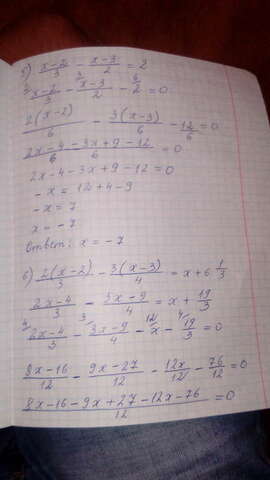 5) (x-2)/3 - (x-3)/2 = 2
²(x-2)/3 - ³(x-3)/2 - ⁶2 = 0
2(x-2)/6 - 3(x-3)/6 - 12/6 = 0
(2x-4-3x+9-12)/6 = 0
2x-4-3x+9-12 = 0
-x = 12+4-9
-x = 7
x = -7
Ответ: x = -7
6) 2(x-2)/3 - 3(x-3)/4 = x + 6 1/3
(2x-4)/3 - (3x-9)/4 = x + 19/3
⁴(2x-4)/3 - ³(3x-9)/4 - ¹²x - ⁴19/3 = 0
(8x-16)/12 - (9x-27)/12 - 12x/12 - 76/12 = 0
(8x-16-9x+27-12x-76)/12 = 0